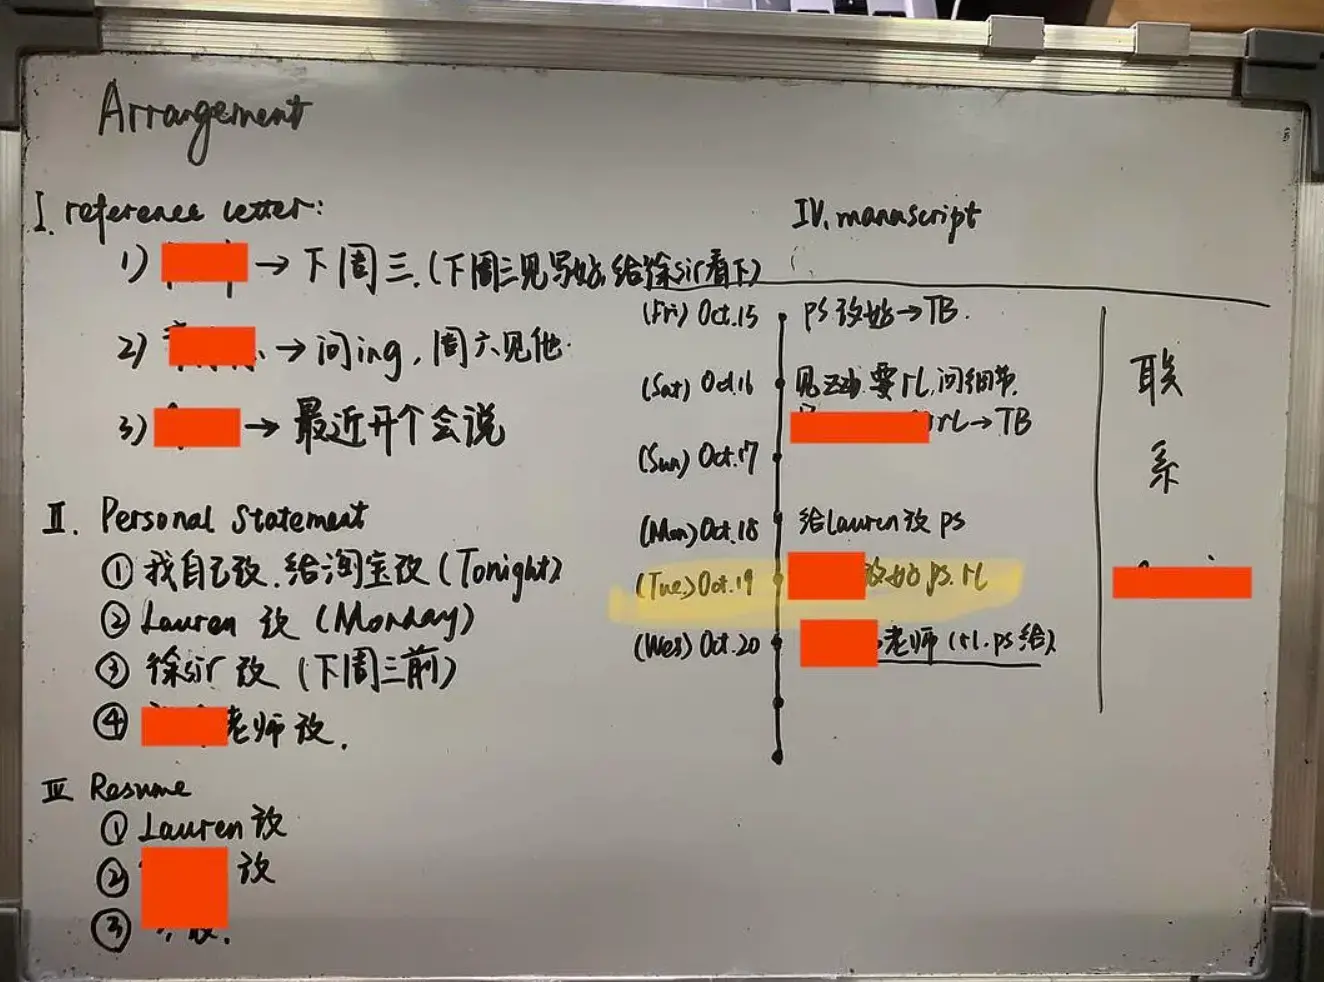 Arrangement
I. reference letter:
1) → 下周三.(下周三见写好,给徐sir看下)
2) → 问ing,周六见他.
3) → 最近开个会说
II. Personal Statement
① 我自己改.给淘宝改(Tonight)
② Lauren 改(Monday)
③ 徐sir 改(下周三前)
④ 老师改.
III Resume
① Lauren改
② 改
③ 改.
IV. manuscript
(Fri) Oct.15 ps改好→TB.
(Sat) Oct.16 见 要rL,问细节.
rL→TB
(Sun) Oct.17
(Mon) Oct.18 给Lauren改 ps
(Tue) Oct.19 改好 ps.rL
(Wes) Oct.20 老师(rL.ps给)
联
系